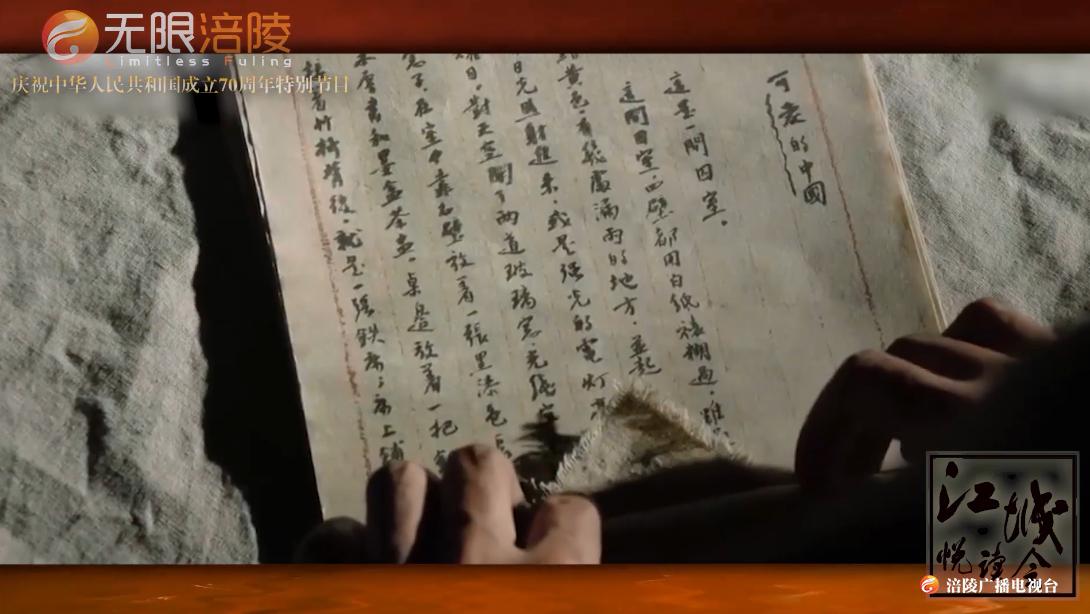 无限涪陵
Limitless Fuling
庆祝中华人民共和国成立70周年特别节目
可爱的中國
這是一間囚室。
這間囚室,四壁都用白紙裱糊過,雖
黄色,有幾處漏雨的地方,並起
日光照射進來,或是强光的電灯
目。對天空開了兩道玻璃窓,光綫
在室中靠石壁放着一張黑漆色長
本厚書和墨盒茶盅。桌邊放着一把
接着竹椅背後,就是一張鉄床;床上鋪
江城
悦读会
涪陵广播电视台